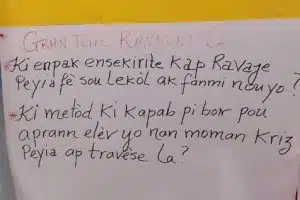 GRAN TÒM RANKONT LA
*Ki enpak ensekirite kap Ravaje
Peyi a fè sou Lekòl ak fanmi nou yo?
*Ki metòd ki kapab pi bon pou
aprann elèv yo nan moman kriz
Peyia ap travèse La?